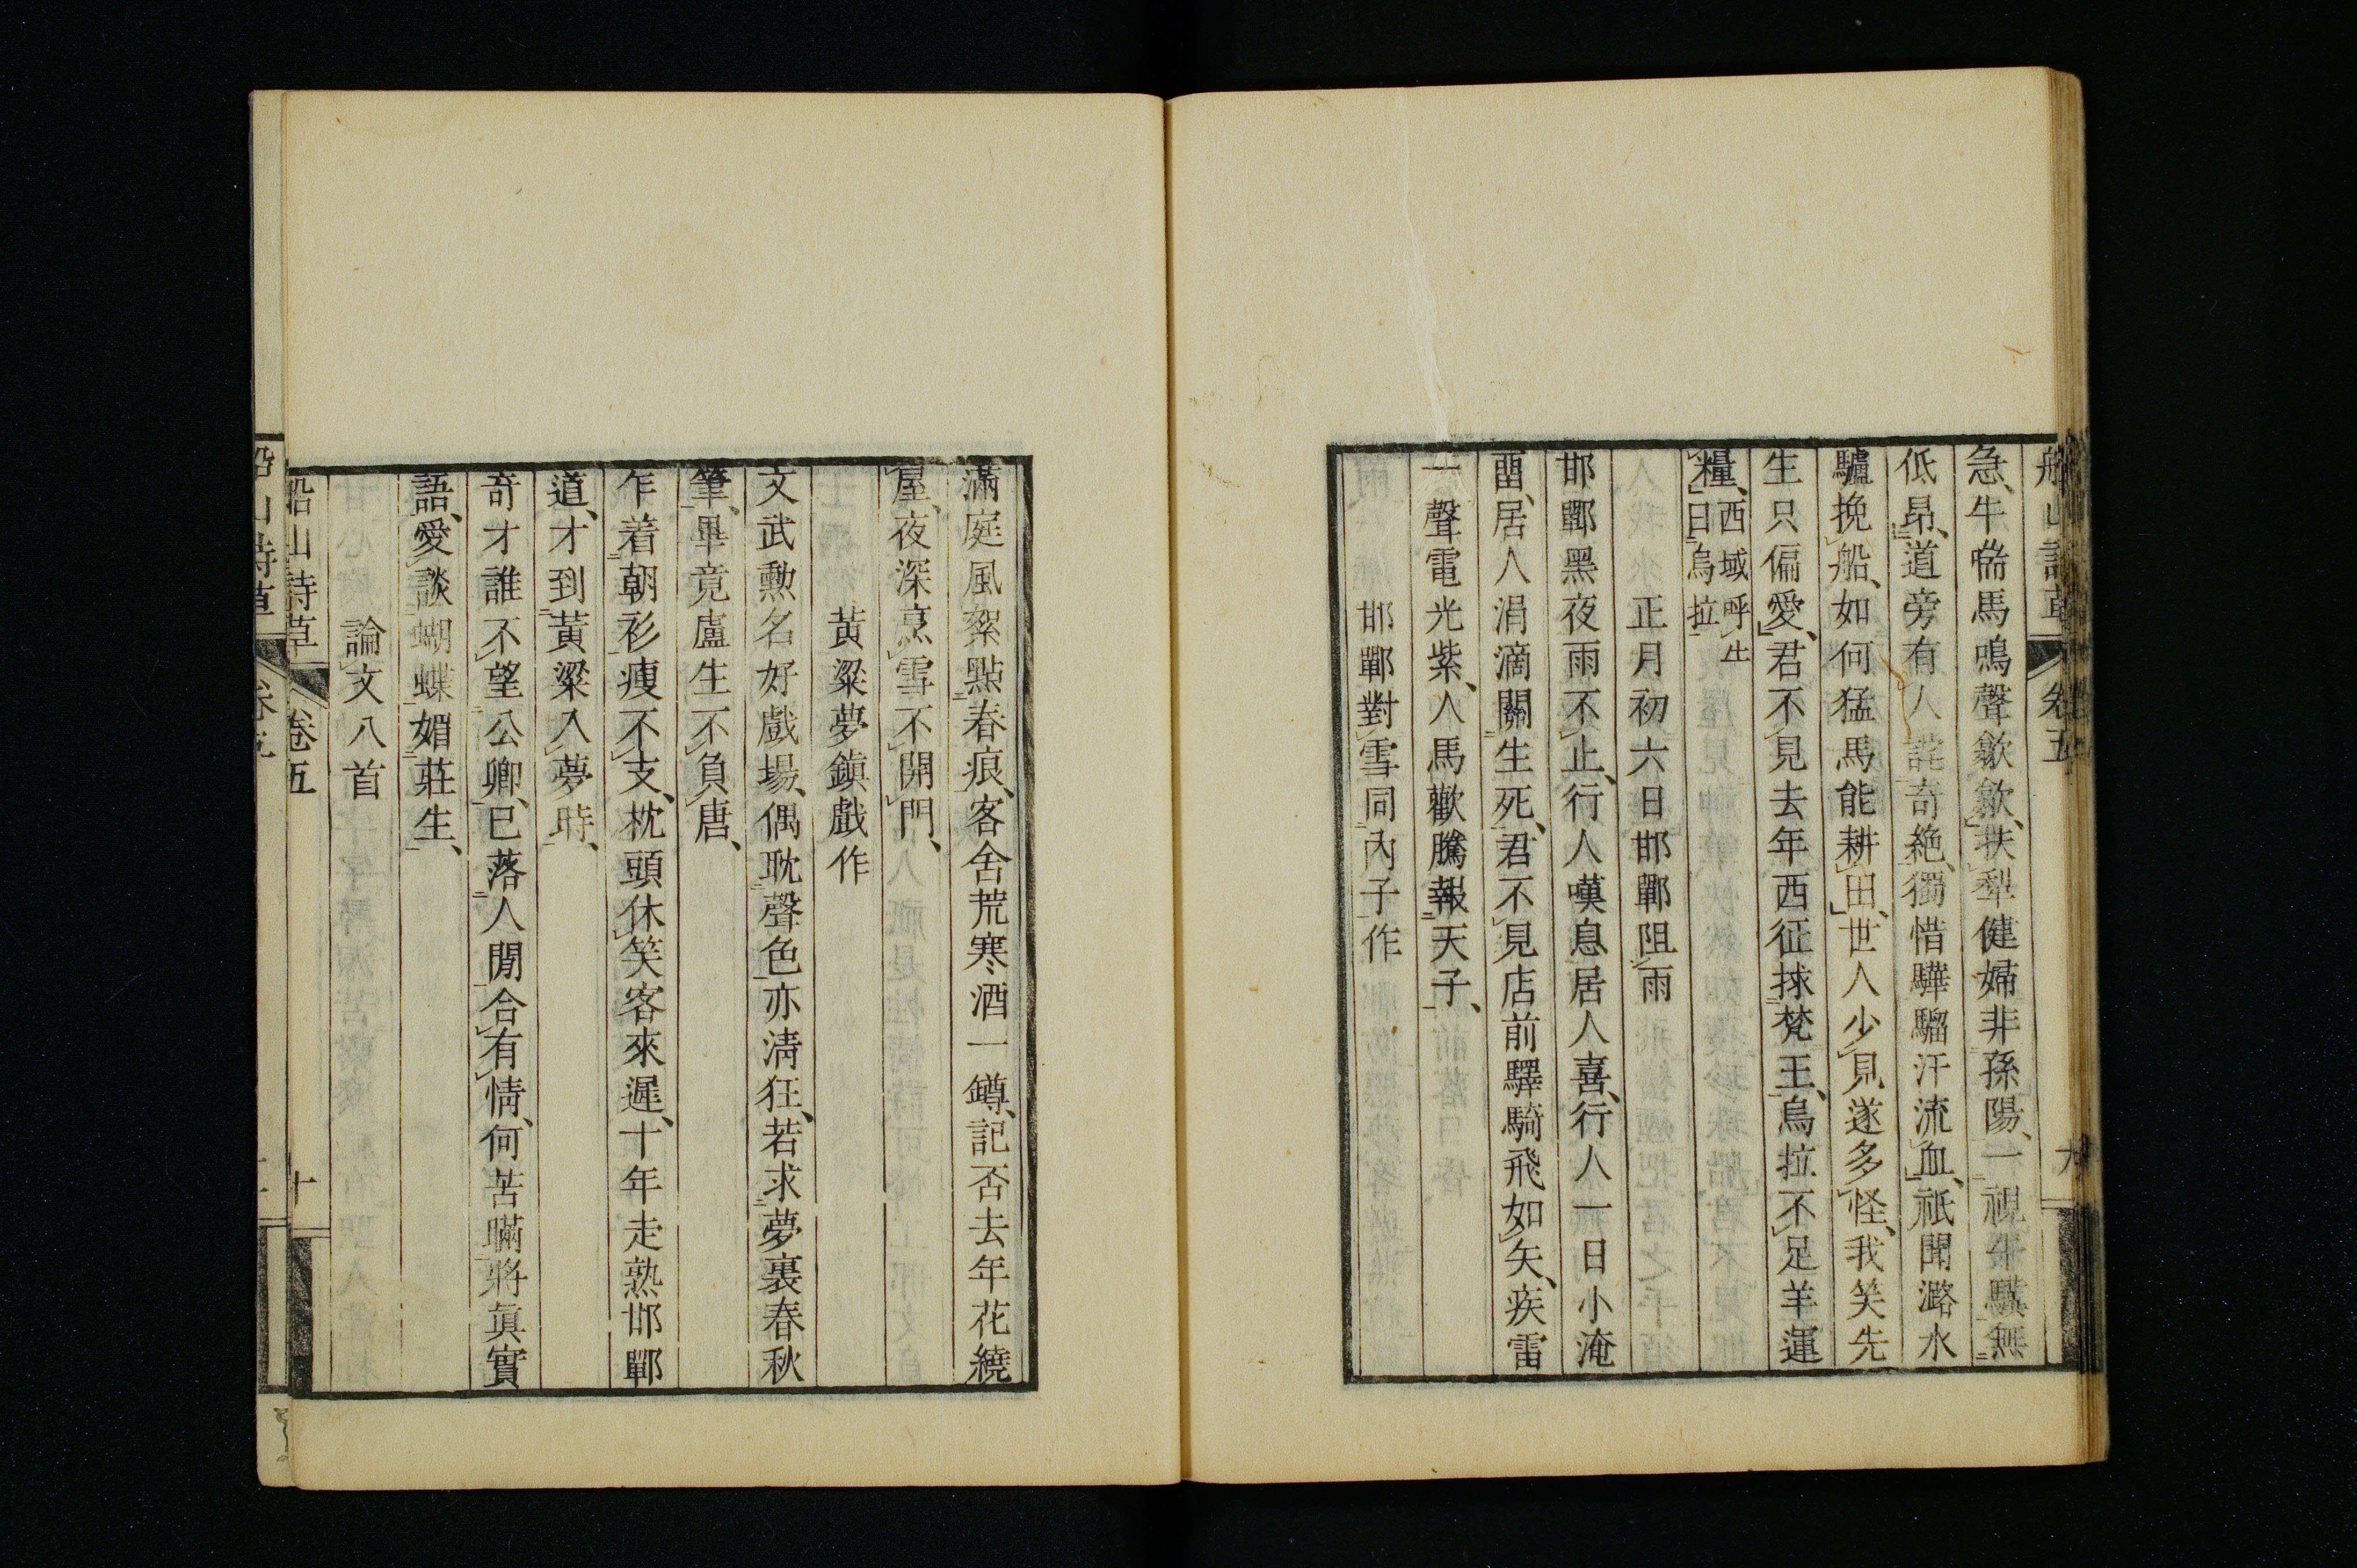 船山詩草 卷五 九
急、牛喘馬鳴聲歙歙、扶犁健婦非孫陽、一視牛驥無
低昂、道旁有人詫奇絶、獨惜驊騮汗流血、祇聞潞水
驢挽船、如何猛馬能耕田、世人少見遂多怪、我笑先
生只偏愛、君不見去年西征捄梵王、烏拉不足羊運
糧、西域呼牛曰烏拉
正月初六日邯鄲阻雨
邯鄲黑夜雨不止、行人嘆息居人喜、行人一日小淹
畱、居人涓滴關生死、君不見店前驛騎飛如矢、疾雷
一聲電光紫、人馬歡騰報天子、
邯鄲對雪同內子作
滿庭風絮點春痕、客舍荒寒酒一罇、記否去年花繞
屋、夜深烹雪不開門、
黃粱夢鎮戲作
文武勲名好戲場、偶耽聲色亦淸狂、若求夢裏春秋
筆、畢竟盧生不負唐、
乍着朝衫瘦不支、枕頭休笑客來遲、十年走熟邯鄲
道、才到黃粱入夢時、
奇才誰不望公卿、已落人閒合有情、何苦瞞將眞實
語、愛談蝴蝶媚莊生、
論文八首
船山詩草 卷五 十
船山詩草 卷五